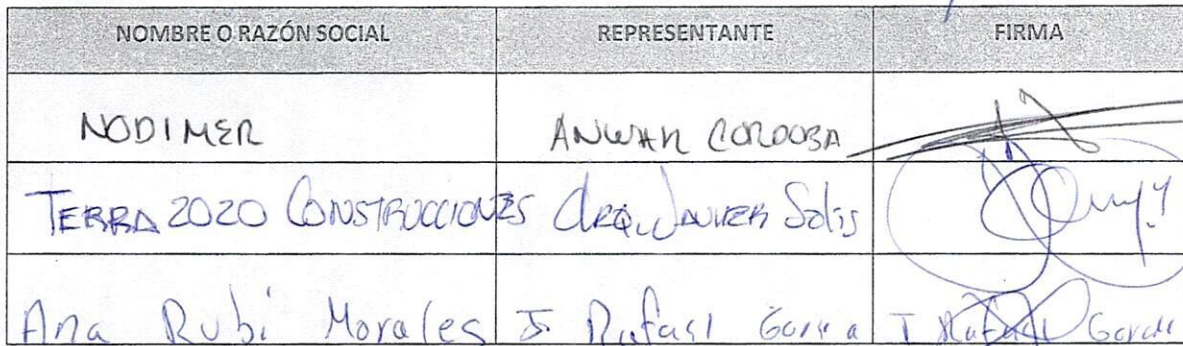 NOMBRE O RAZÓN SOCIAL REPRESENTANTE FIRMA
NODIMER ANWAR CORDOBA
TERRA 2020 CONSTRUCCIONES ARQ. JAVIER Solis
Ana Rubi Morales J Rafael Garcia J Rafael Garcia